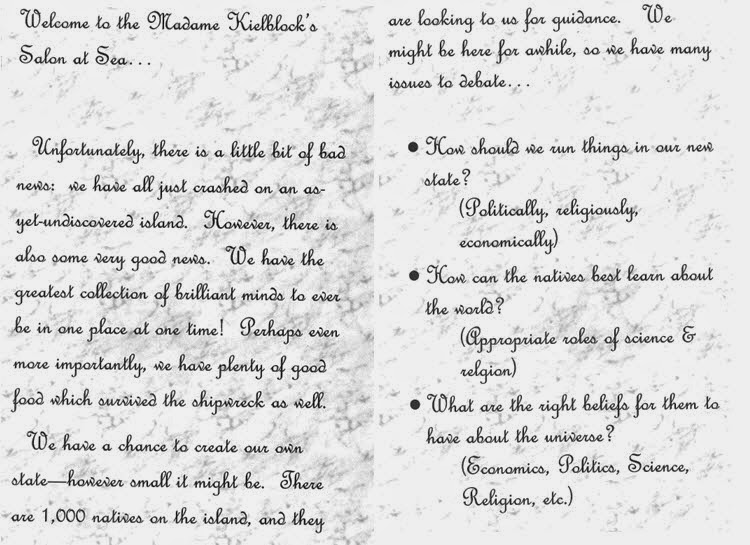 Welcome to the Madame Kielblock's
Salon at Sea...
Unfortunately, there is a little bit of bad
news: we have all just crashed on an as-
yet-undiscovered island. However, there is
also some very good news. We have the
greatest collection of brilliant minds to ever
be in one place at one time! Perhaps even
more importantly, we have plenty of good
food which survived the shipwreck as well.
We have a chance to create our own
state—however small it might be. There
are 1,000 natives on the island, and they
are looking to us for guidance. We
might be here for awhile, so we have many
issues to debate...
• How should we run things in our new
state?
(Politically, religiously,
economically)
• How can the natives best learn about
the world?
(Appropriate roles of science &
relgion)
• What are the right beliefs for them to
have about the universe?
(Economics, Politics, Science,
Religion, etc.)